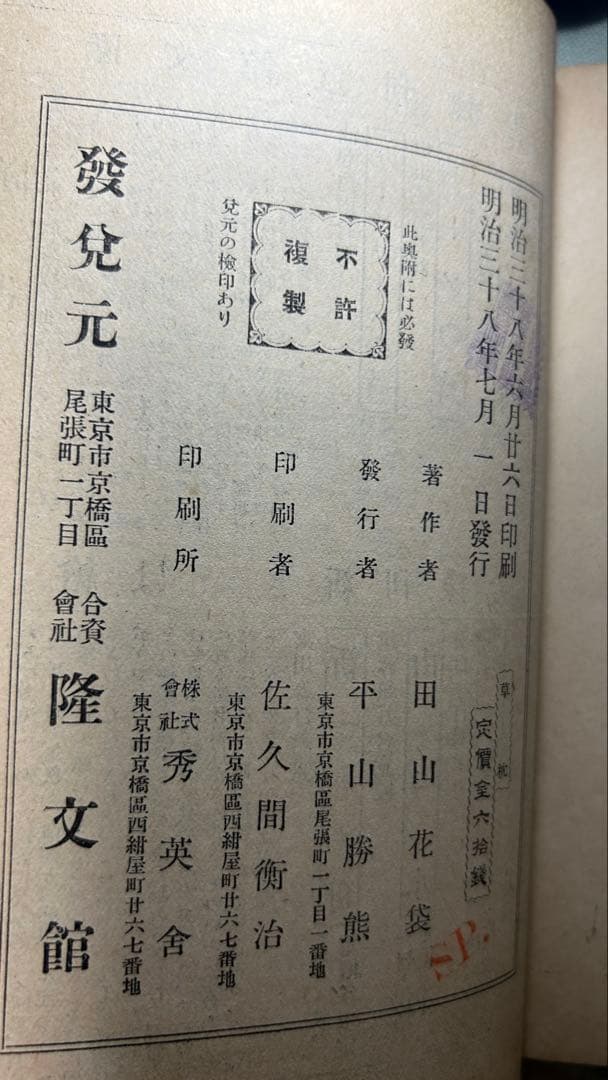 明治三十八年六月廿六日印刷
明治三十八年七月一日發行
草枕
定價金六拾錢
此奥附には必發
不許
複製
兌元の檢印あり
著作者 田山花袋
發行者 平山勝熊
東京市京橋區尾張町一丁目一番地
印刷者 佐久間衡治
東京市京橋區西紺屋町廿六七番地
印刷所 株式會社 秀英舍
東京市京橋區西紺屋町廿六七番地
發兌元 東京市京橋區
尾張町一丁目 合資會社 隆文館
SP.